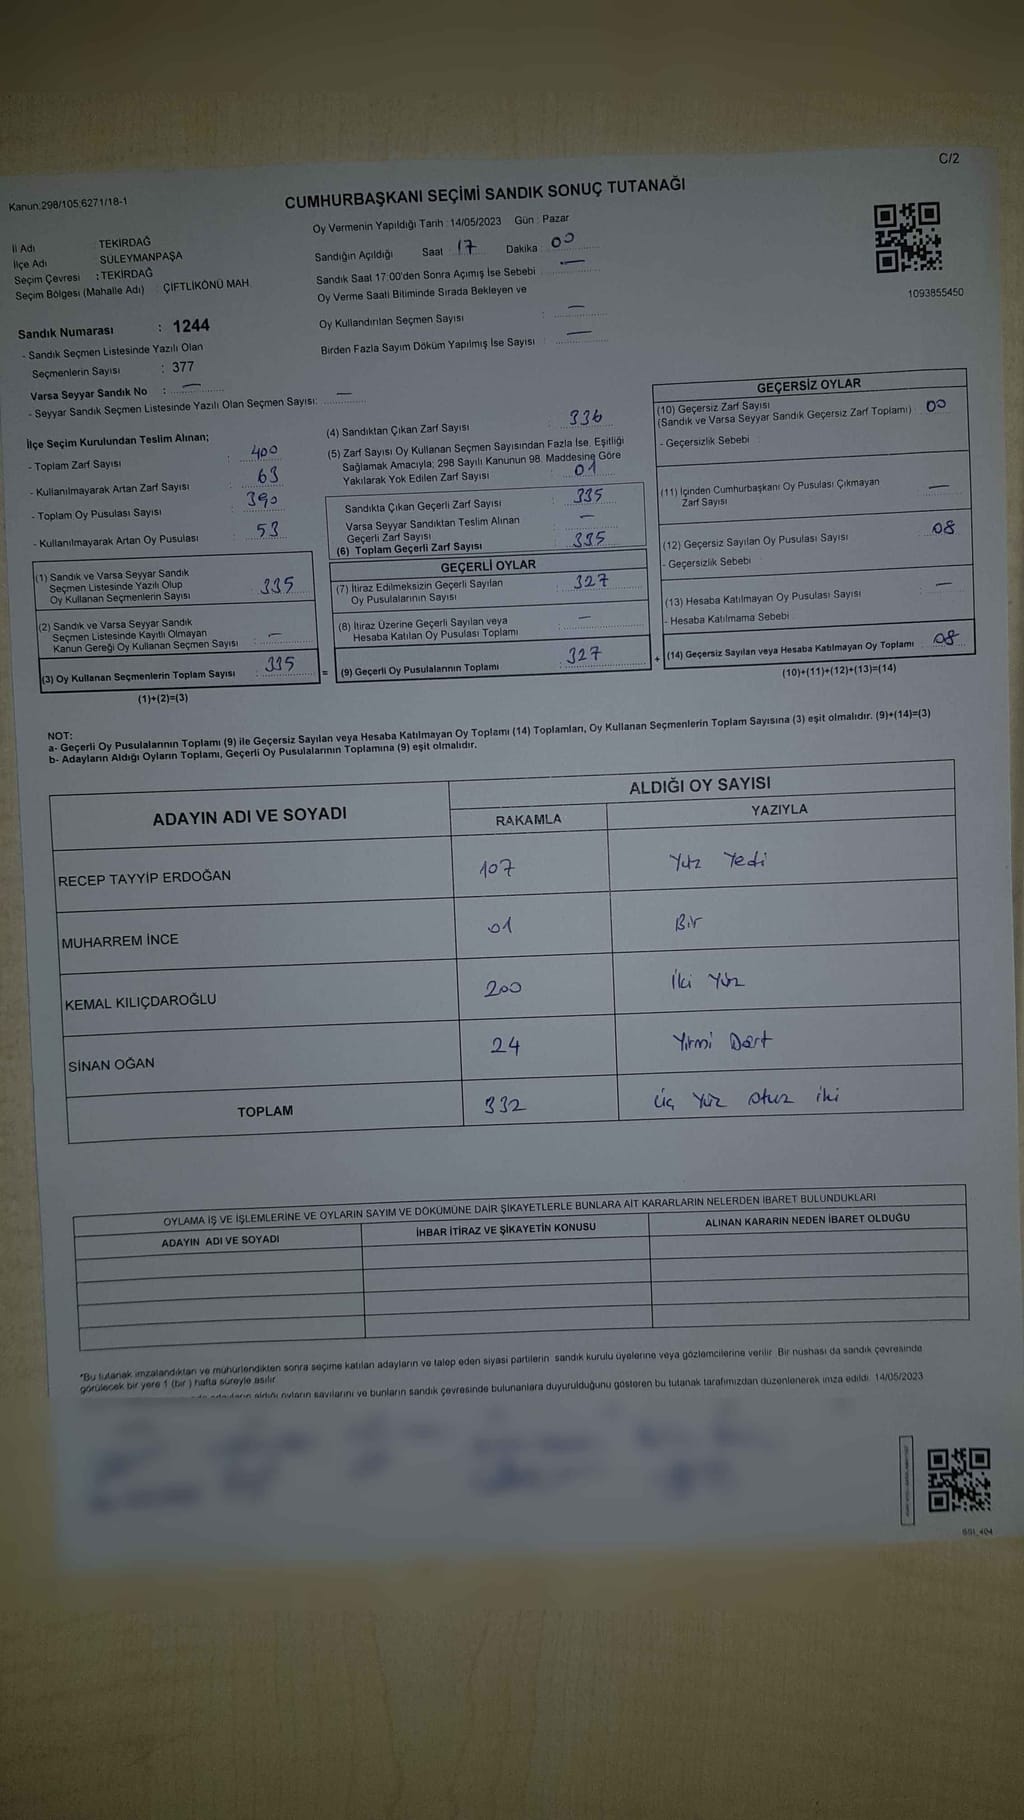 C/2
Kanun:298/105;6271/18-1
CUMHURBAŞKANI SEÇİMİ SANDIK SONUÇ TUTANAĞI
İl Adı : TEKİRDAĞ
İlçe Adı : SÜLEYMANPAŞA
Seçim Çevresi : TEKİRDAĞ
Seçim Bölgesi (Mahalle Adı) : ÇİFTLİKÖNÜ MAH.
Oy Vermenin Yapıldığı Tarih : 14/05/2023 Gün : Pazar
Sandığın Açıldığı Saat 17 Dakika 00
Sandık Saat 17:00'den Sonra Açımış İse Sebebi : —
Oy Verme Saati Bitiminde Sırada Bekleyen ve
Oy Kullandırılan Seçmen Sayısı : —
Birden Fazla Sayım Döküm Yapılmış İse Sayısı : —
1093855450
Sandık Numarası : 1244
- Sandık Seçmen Listesinde Yazılı Olan
Seçmenlerin Sayısı : 377
Varsa Seyyar Sandık No : —
- Seyyar Sandık Seçmen Listesinde Yazılı Olan Seçmen Sayısı: —
İlçe Seçim Kurulundan Teslim Alınan;
- Toplam Zarf Sayısı : 400
- Kullanılmayarak Artan Zarf Sayısı : 63
- Toplam Oy Pusulası Sayısı : 390
- Kullanılmayarak Artan Oy Pusulası : 53
(1) Sandık ve Varsa Seyyar Sandık
Seçmen Listesinde Yazılı Olup
Oy Kullanan Seçmenlerin Sayısı : 335
(2) Sandık ve Varsa Seyyar Sandık
Seçmen Listesinde Kayıtlı Olmayan
Kanun Gereği Oy Kullanan Seçmen Sayısı : —
(3) Oy Kullanan Seçmenlerin Toplam Sayısı : 335
(1)+(2)=(3)
(4) Sandıktan Çıkan Zarf Sayısı : 336
(5) Zarf Sayısı Oy Kullanan Seçmen Sayısından Fazla İse, Eşitliği
Sağlamak Amacıyla; 298 Sayılı Kanunun 98. Maddesine Göre
Yakılarak Yok Edilen Zarf Sayısı : 01
Sandıkta Çıkan Geçerli Zarf Sayısı : 335
Varsa Seyyar Sandıktan Teslim Alınan
Geçerli Zarf Sayısı : —
(6) Toplam Geçerli Zarf Sayısı : 335
GEÇERLİ OYLAR
(7) İtiraz Edilmeksizin Geçerli Sayılan
Oy Pusulalarının Sayısı : 327
(8) İtiraz Üzerine Geçerli Sayılan veya
Hesaba Katılan Oy Pusulası Toplamı : —
= (9) Geçerli Oy Pusulalarının Toplamı : 327
GEÇERSİZ OYLAR
(10) Geçersiz Zarf Sayısı
(Sandık ve Varsa Seyyar Sandık Geçersiz Zarf Toplamı) : 00
- Geçersizlik Sebebi :
(11) İçinden Cumhurbaşkanı Oy Pusulası Çıkmayan
Zarf Sayısı : —
(12) Geçersiz Sayılan Oy Pusulası Sayısı : 08
- Geçersizlik Sebebi :
(13) Hesaba Katılmayan Oy Pusulası Sayısı : —
- Hesaba Katılmama Sebebi :
+ (14) Geçersiz Sayılan veya Hesaba Katılmayan Oy Toplamı : 08
(10)+(11)+(12)+(13)=(14)
NOT:
a- Geçerli Oy Pusulalarının Toplamı (9) ile Geçersiz Sayılan veya Hesaba Katılmayan Oy Toplamı (14) Toplamları, Oy Kullanan Seçmenlerin Toplam Sayısına (3) eşit olmalıdır. (9)+(14)=(3)
b- Adayların Aldığı Oyların Toplamı, Geçerli Oy Pusulalarının Toplamına (9) eşit olmalıdır.
ADAYIN ADI VE SOYADI
ALDIĞI OY SAYISI
RAKAMLA YAZIYLA
RECEP TAYYİP ERDOĞAN 107 Yüz Yedi
MUHARREM İNCE 01 Bir
KEMAL KILIÇDAROĞLU 200 İki Yüz
SİNAN OĞAN 24 Yirmi Dört
TOPLAM 332 Üç Yüz otuz iki
OYLAMA İŞ VE İŞLEMLERİNE VE OYLARIN SAYIM VE DÖKÜMÜNE DAİR ŞİKAYETLERLE BUNLARA AİT KARARLARIN NELERDEN İBARET BULUNDUKLARI
ADAYIN ADI VE SOYADI İHBAR İTİRAZ VE ŞİKAYETİN KONUSU ALINAN KARARIN NEDEN İBARET OLDUĞU
*Bu tutanak imzalandıktan ve mühürlendikten sonra seçime katılan adayların ve talep eden siyasi partilerin sandık kurulu üyelerine veya gözlemcilerine verilir. Bir nüshası da sandık çevresinde
görülecek bir yere 1 (bir ) hafta süreyle asılır.
adayların aldığı oyların sayılarını ve bunların sandık çevresinde bulunanlara duyurulduğunu gösteren bu tutanak tarafımızdan düzenlenerek imza edildi. 14/05/2023